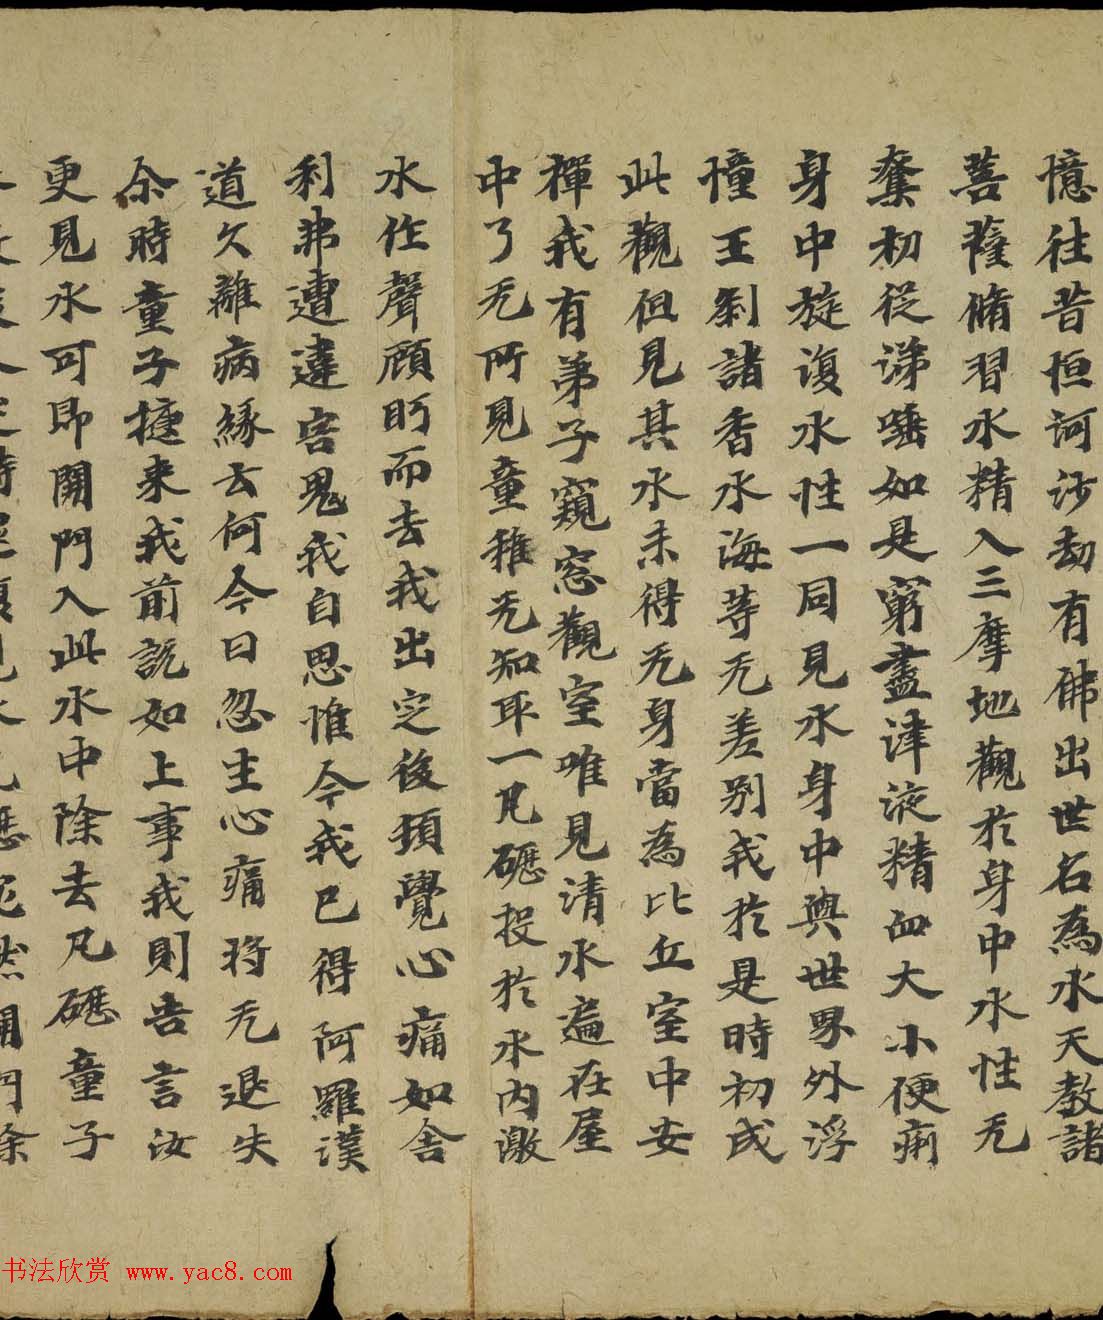 憶往昔恒河沙劫有佛出世名為水天教諸
菩薩脩習水精入三摩地觀於身中水性无
奪初從涕唾如是窮盡津液精血大小便痢
身中旋復水性一同見水身中與世界外浮
幢王剎諸香水海等无差別我於是時初成
此觀但見其水未得无身當為比丘室中安
禪我有弟子窺窓觀室唯見清水遍在屋
中了无所見童稚无知取一瓦礰投於水內激
水作聲顧眄而去我出定後頓覺心痛如舍
利弗遭違害鬼我自思惟今我已得阿羅漢
道久離病緣云何今日忽生心痛將无退失
尒時童子捷來我前說如上事我則告言汝
更見水可即開門入此水中除去瓦礰童子
然開門除
书法欣赏 www.yac8.com